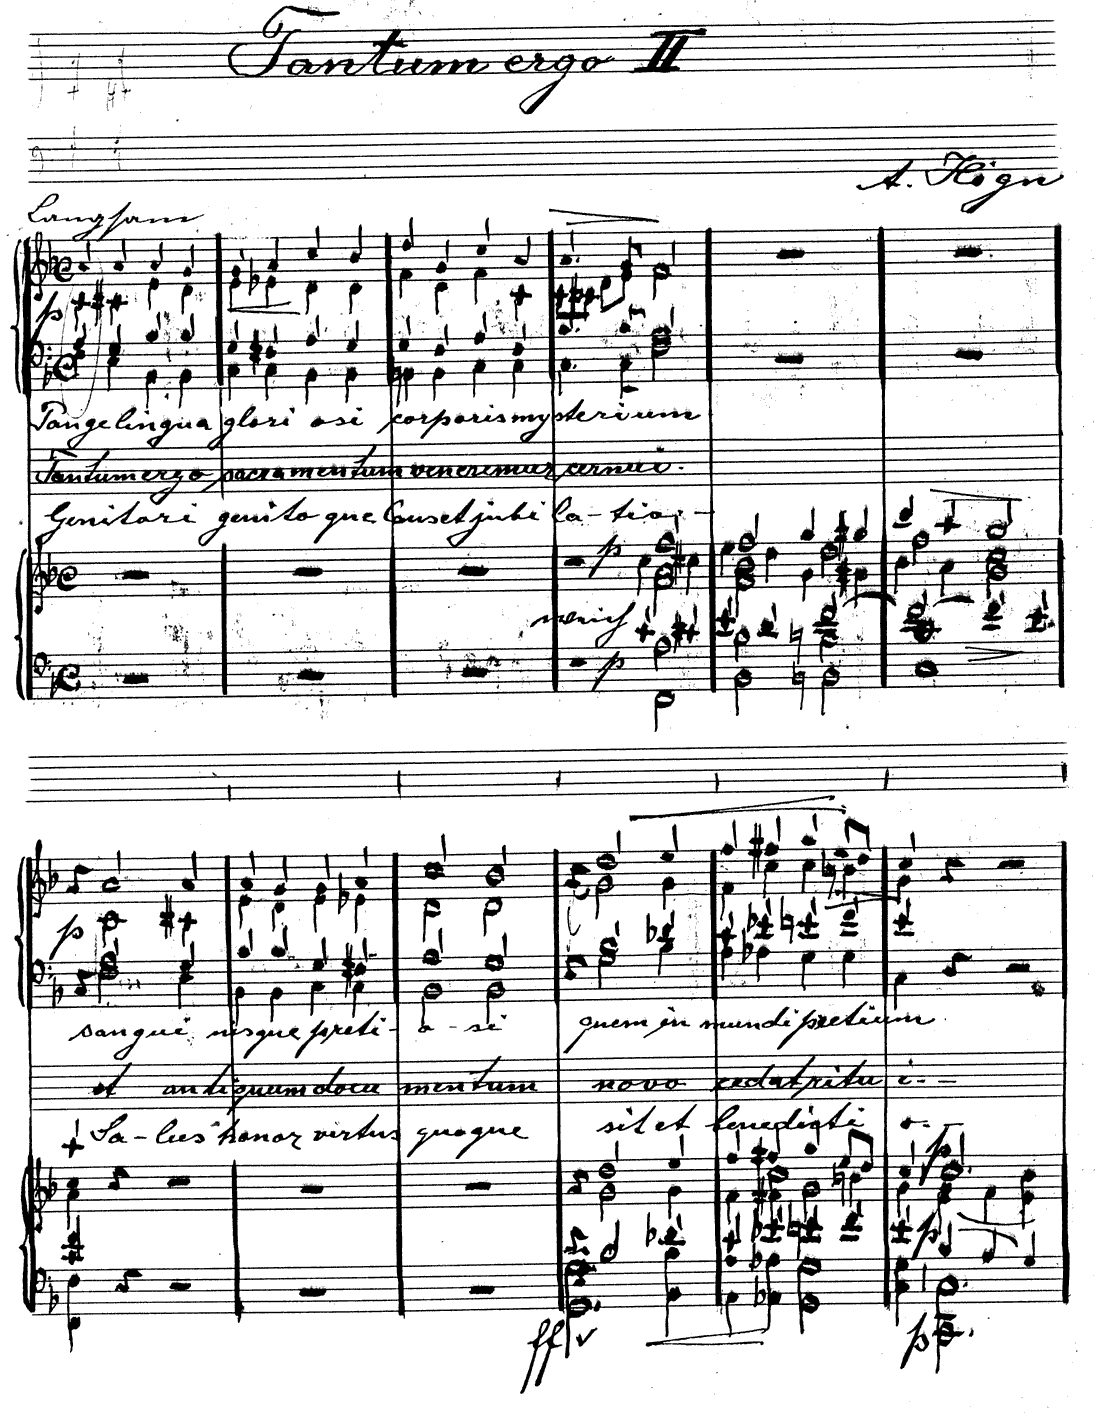 Tantum ergo II
A. Högn
Langsam
p
Pange lingua glori osi corporis mysterium
Tantum ergo sacramentum veneremur cernui.
Genitori genito que laus et jubi la-tio. -
p
weich
p
p
sangui nisque preti-o-si quem in mundi pretium
et antiquum docu mentum novo cedat ritu i. - -
Sa-lus honor virtus quoque sit et benedicti o. -
p
p
ff
p